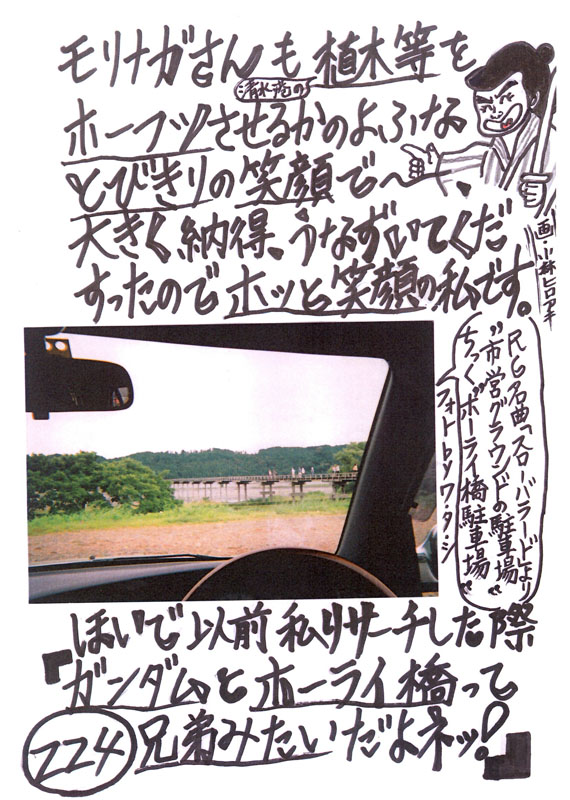 モリナガさんも植木等を
(清水港の)
ホーフツさせるかのよふな
とびきりの笑顔で〜、
大きく納得、うなずいてくだ
すったのでホッと笑顔の私です。
画・小林ヒロアキ
RC名曲「スローバラード」より
“市営グラウンドの駐車場”
ちっく“ホーライ橋駐車場”
フォトbyワタシ
ほいで以前私リサーチした際
『ガンダムとホーライ橋って
兄弟みたいだよネッ!』
224